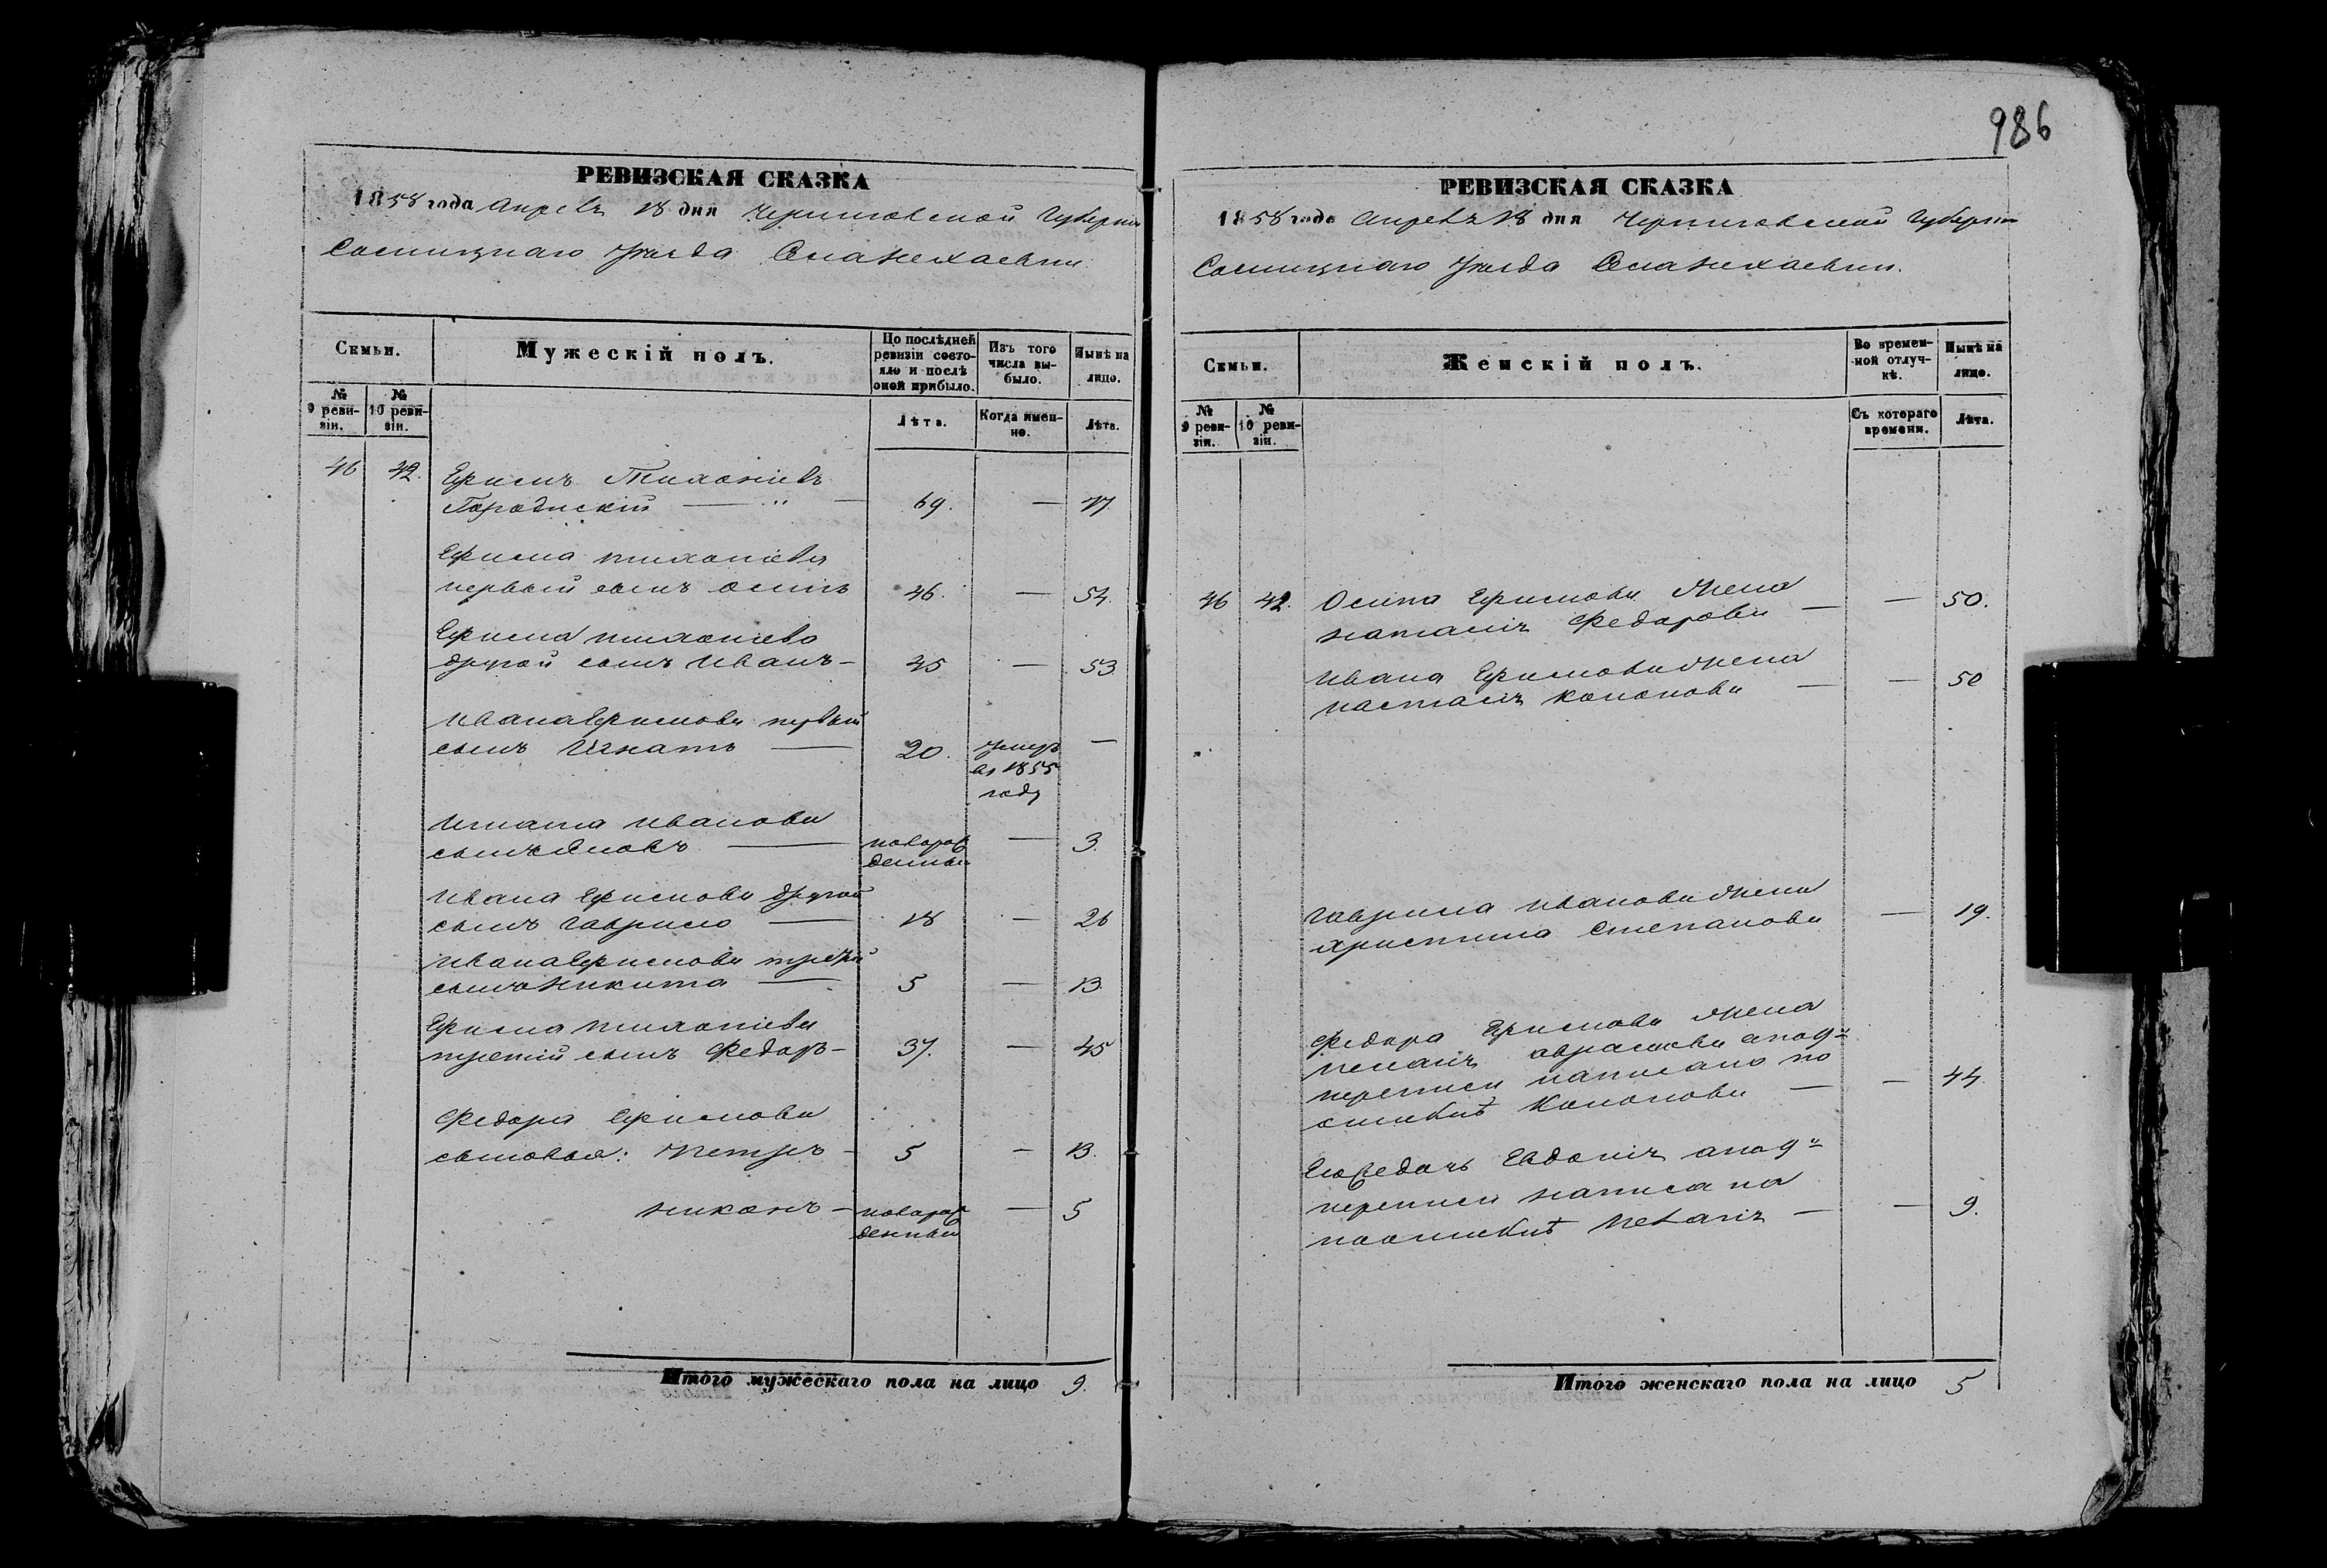 986
РЕВИЗСКАЯ СКАЗКА
1858 года Апреля 18 дня Черниговской Губернии
Сосницкаго Уезда
Семьи.
Мужескій полъ.
По послѣдней ревизіи состо-
яло и послѣ
оной прибыло.
Изъ того
числа вы-
было.
Нынѣ на
лицо.
№
9 реви-
зіи.
№
10 реви-
зіи.
Лѣта.
Когда имен-
но.
Лѣта.
46 42. Ефимъ
Городискій — 69. — 77.
Ефима
первый сынъ Осипъ 46. — 54.
Ефима
другой сынъ Иванъ — 45 — 53
Ивана Ефимова первый
сынъ Игнатъ — 20. умеръ —
въ 1855
году
Игната Иванова
сынъ Яковъ — новорож
денный — 3.
Ивана Ефимова другой
сынъ Гаврило — 18 — 26
Ивана Ефимова третій
сынъ Никита — 5 — 13.
Ефима
третій сынъ Федоръ — 37. — 45
Федора Ефимова
сыновья: Петръ — 5 — 13.
Никонъ — новорож
денный — 5
Итого мужескаго пола на лицо 9.
РЕВИЗСКАЯ СКАЗКА
1858 года Апреля 18 дня Черниговской Губернии
Сосницкаго Уезда
Семьи.
Женскій полъ.
Во времен-
ной отлуч-
кѣ.
Нынѣ на
лицо.
№
9 реви-
зіи.
№
10 реви-
зіи.
Съ котораго
времени.
Лѣта.
46 42. Осипа Ефимова жена
Федорова — — 50.
Ивана Ефимова жена
Настасія Кононова — — 50
Гаврила Иванова жена
Христина Степанова — 19.
Федора Ефимова жена
переписи написано по
ошибкѣ Кононова — — 44
Евдокія по 9й
переписи написана
по ошибкѣ — — 9.
Итого женскаго пола на лицо 5